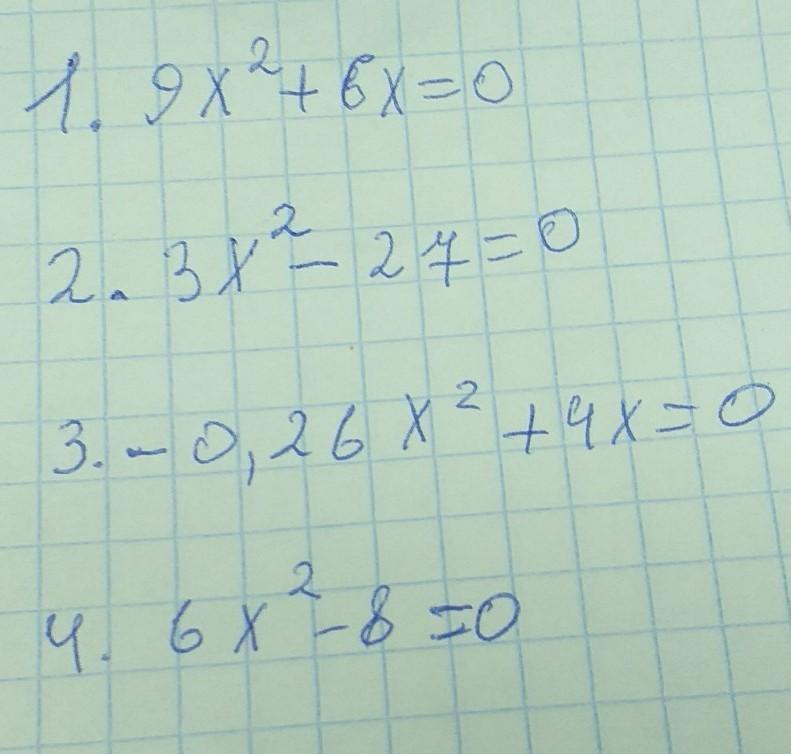 1. 9x² + 6x = 0
2. 3x² - 27 = 0
3. - 0,26x² + 4x = 0
4. 6x² - 8 = 0